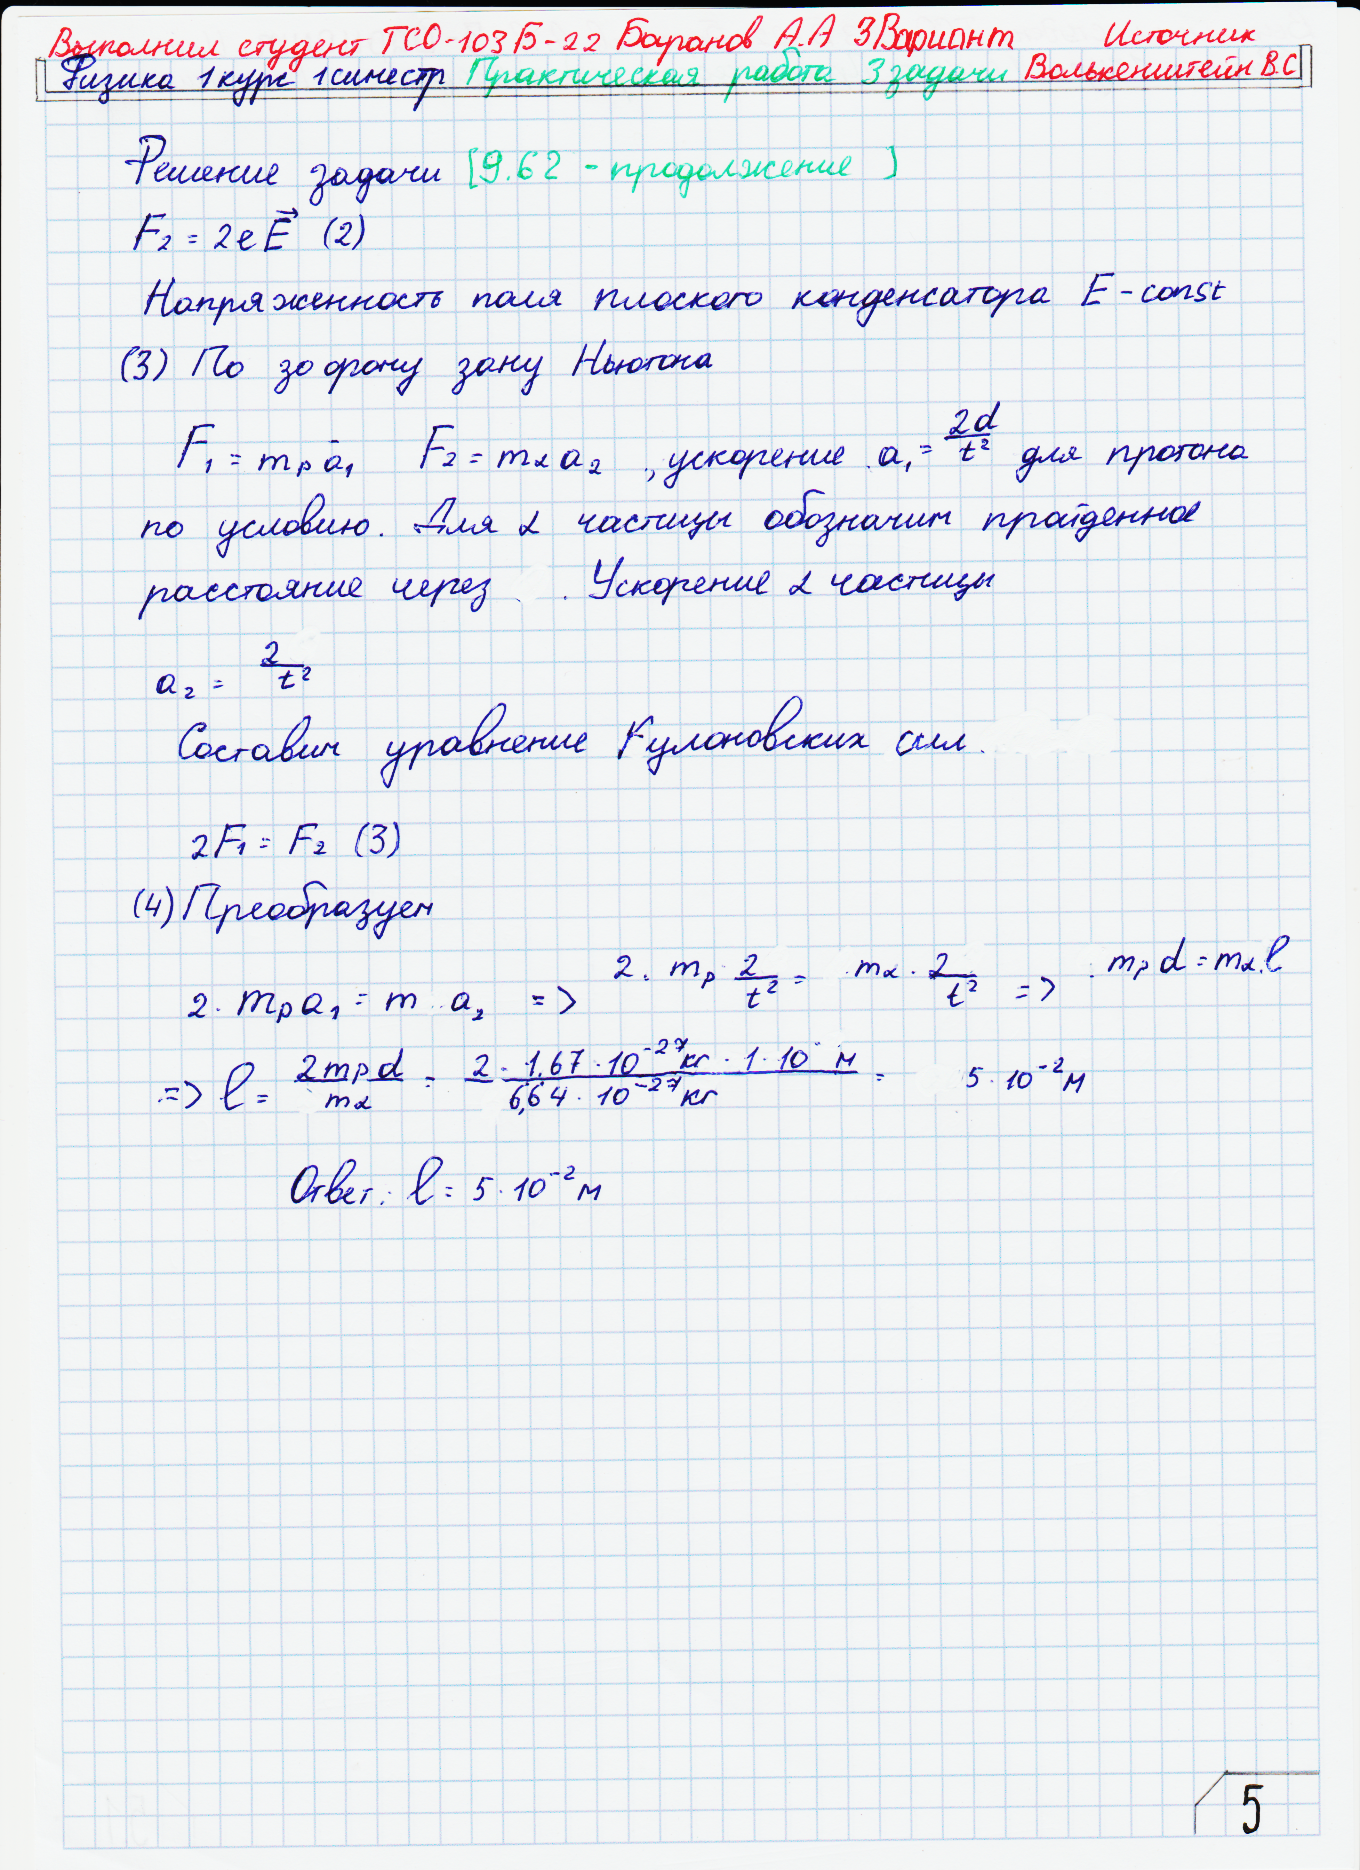 Выполнил студент ТСО-103Б-22 Баранов А.А 3Вариант Источник
Физика 1курс 1синестр Практическая работа 3задачи Волькенштейн В.С
Решение задачи [9.62 - продолжение ]
F₂ = 2eE⃗ (2)
Напряженность поля плоского конденсатора E - const
(3) По зофону зану Ньютона
F₁ = mₚa₁ F₂ = mαa₂ , ускорение a₁ = 2d/t² для протона
по условию. Для α частицы обозначим пройденное
расстояние через . Ускорение α частицы
a₂ = 2/t²
Составим уравнение Кулоновских сил.
2F₁ = F₂ (3)
(4) Преобразуем
2 · mₚa₁ = m a₂ => 2 · mₚ · 2/t² = mα · 2/t² => mₚd = mα l
=> l = 2mₚd/mα = 2 · 1,67 · 10⁻²⁷кг · 1 · 10 м / 6,64 · 10⁻²⁷кг = 5 · 10⁻²м
Ответ: l = 5 · 10⁻²м
5